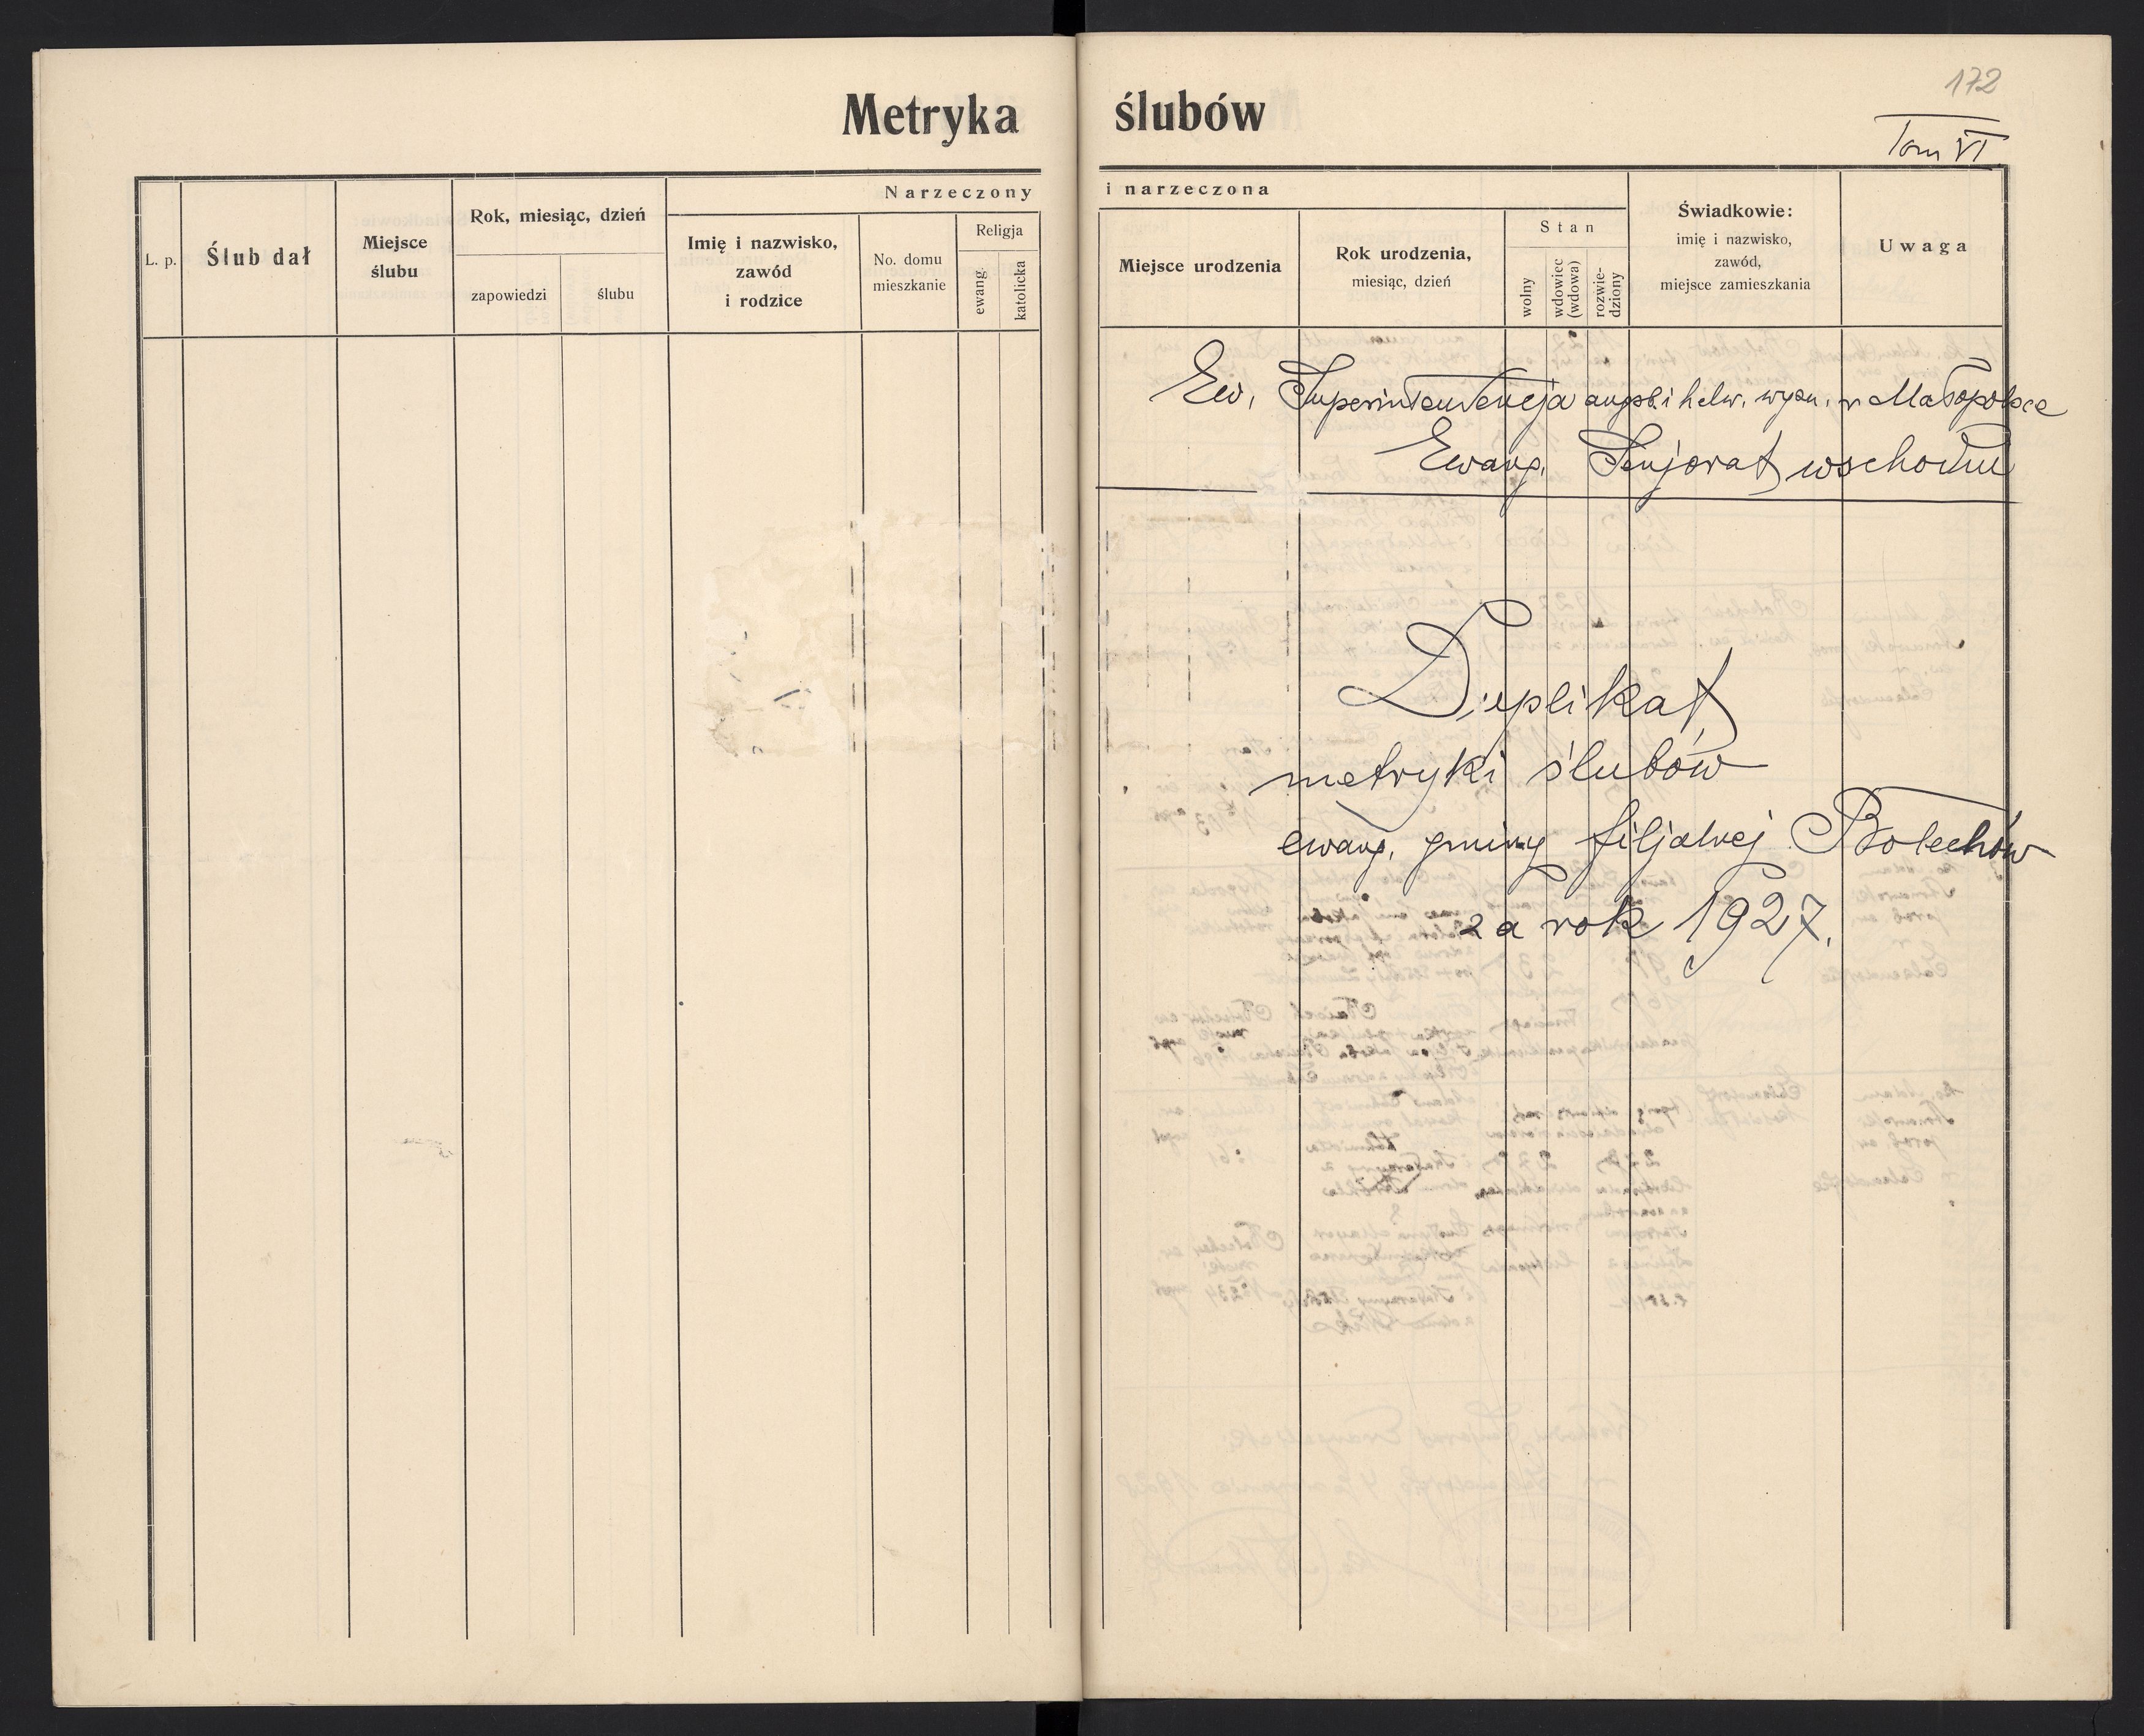 172
Tom VI
Metryka ślubów
Narzeczony i narzeczona
L. p.
Ślub dał
Miejsce
ślubu
Rok, miesiąc, dzień
zapowiedzi
ślubu
Imię i nazwisko,
zawód
i rodzice
No. domu
mieszkanie
Religja
ewang.
katolicka
Miejsce urodzenia
Rok urodzenia,
miesiąc, dzień
Stan
wolny
wdowiec
(wdowa)
rozwie-
dziony
Świadkowie:
imię i nazwisko,
zawód,
miejsce zamieszkania
Uwaga
Ew. Superintendencja augsb. i helw. wyzn. w Małopolsce
Ewang. Senjorat wschodni
Duplikat
metryki ślubów
ewang. gminy filjalnej Bolechów
za rok 1927.